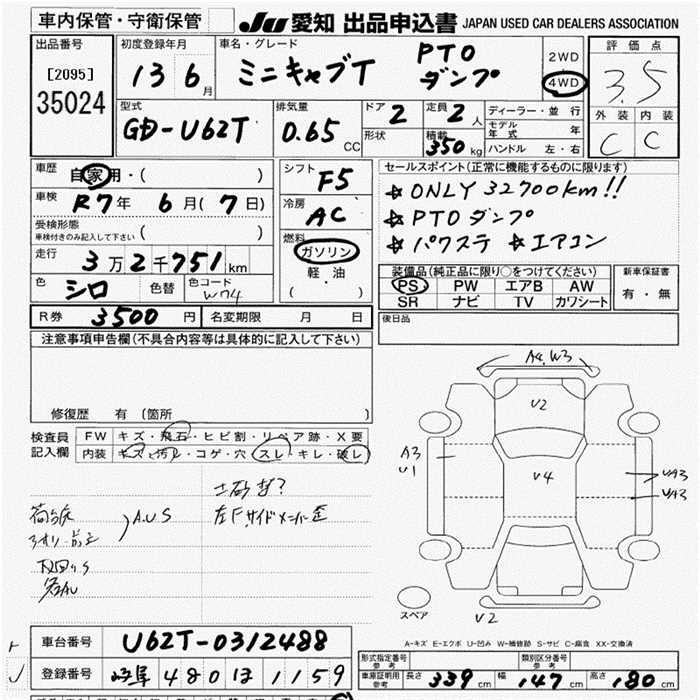 車内保管・守衛保管 JU 愛知 出品申込書 JAPAN USED CAR DEALERS ASSOCIATION
出品番号 初度登録年月 車名・グレード 2WD 評価点
[2095] 13 6月 ミニキャブT PTO ダンプ 4WD 3.5
35024
型式 排気量 ドア 2 定員 2人 ディーラー・並行 外装 内装
GD-U62T 0.65 CC 形状 積載 350kg モデル年式 年 C C
ハンドル 左・右
車歴 自家用・( ) シフト F5 セールスポイント(正常に機能するものに限ります)
車検 R7年 6月(7日) 冷房 AC ☆ONLY 32700km!!
受検形態 ☆PTOダンプ
車検付きのみ記入して下さい ( ) 燃料 ガソリン ☆パワステ ☆エアコン
走行 3万2千751km 軽・油
色 シロ 色替 色コード W74 ( )
装備品(純正品に限り○をつけてください) 新車保証書
PS PW エアB AW 有・無
SR ナビ TV カワシート
R券 3500円 名変期限 月 日 後日品
注意事項申告欄(不具合内容等は具体的に記入して下さい)
修復歴 有(箇所 )
検査員記入欄 FW キズ・飛石・ヒビ割・リペア跡・X要
内装 キズ・汚レ・コゲ・穴・スレ・キレ・破レ
A4,W3
V2
A3
U1
V4
UA3
UA3
A.U.S
左F.サイドメンバー歪
スペア
V2
A-キズ E-エクボ U-凹み W-補修跡 S-サビ C-腐食 XX-交換済
車台番号 U62T-0312488
登録番号 岐阜 480 ほ 1159
形式指定番号 参考 類別区分番号 参考
車庫証明用 参考 長さ 339cm 幅 147cm 高さ 180cm